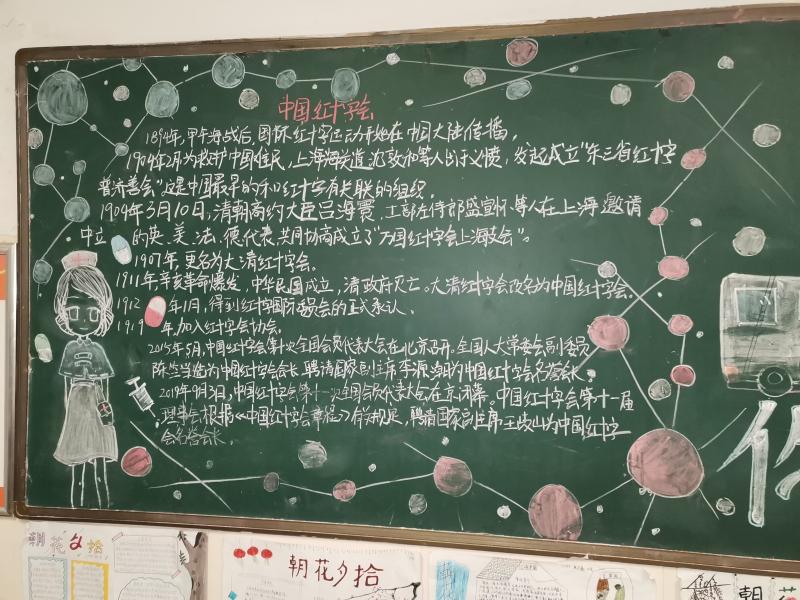 中国红十字会
1894年,甲午海战后,国际红十字运动开始在中国大陆传播,
1904年2月为救护中国住民,上海海关道沈敦和等人出于义愤,发起成立"东三省红十字
普济善会"这是中国最早的和红十字有关联的组织.
1904年3月10日,清朝商约大臣吕海寰、工部左侍郎盛宣怀等人在上海邀请
中立的英、美、法、德代表,共同协商成立了"万国红十字会上海支会"。
1907年,更名为大清红十字会。
1911年辛亥革命爆发,中华民国成立,清政府灭亡。大清红十字会改名为中国红十字会.
1912年1月,得到红十字国际委员会的正式承认.
1919年,加入红十字会协会.
2015年5月,中国红十字会第十次全国会员代表大会在北京召开,全国人大常委会副委员
陈竺当选为中国红十字会会长,聘请国家副主席李源潮为中国红十字会名誉会长.
2019年9月3日,中国红十字会第十一次全国会员代表大会在京闭幕。中国红十字会第十一届
理事会根据《中国红十字会章程》有关规定,聘请国家副主席王岐山为中国红十字
会名誉会长.
朝花夕拾
朝花夕拾
朝花